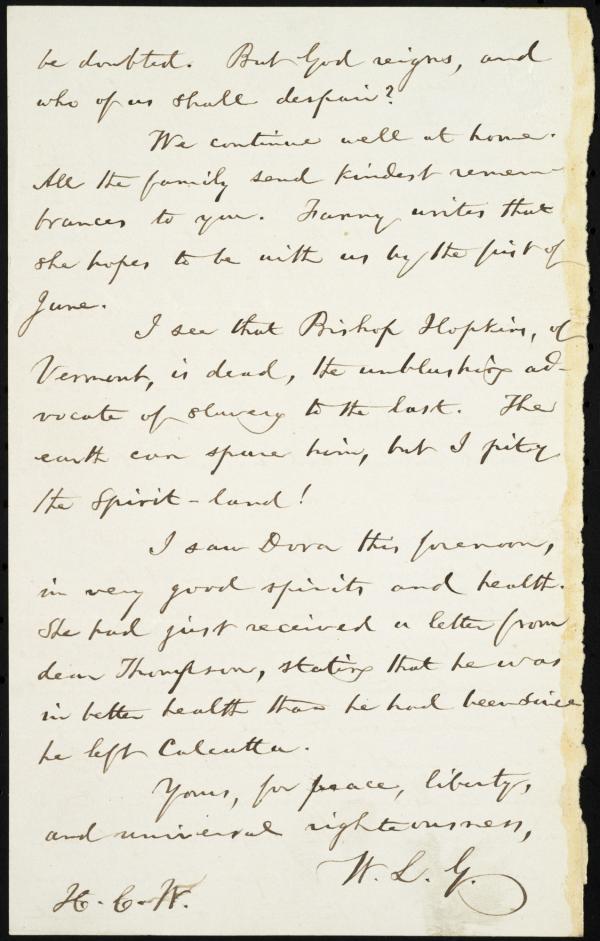 be doubted. But God reigns, and
who of us shall despair?
We continue well at home.
All the family send kindest remem-
brances to you. Fanny writes that
she hopes to be with us by the first of
June.
I see that Bishop Hopkins, of
Vermont, is dead, the unblushing ad-
vocate of slavery to the last. The
earth can spare him, but I pity
the Spirit-land!
I saw Dora this forenoon,
in very good spirits and health.
She had just received a letter from
dear Thompson, stating that he was
in better health than he had been since
he left Calcutta.
Yours, for peace, liberty,
and universal righteousness,
W. L. G.
H. C. W.